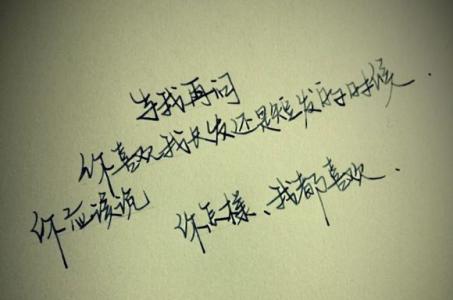 当我再问
你喜欢我长发还是短发的时候.
你应该说
你怎樣、我都喜欢.